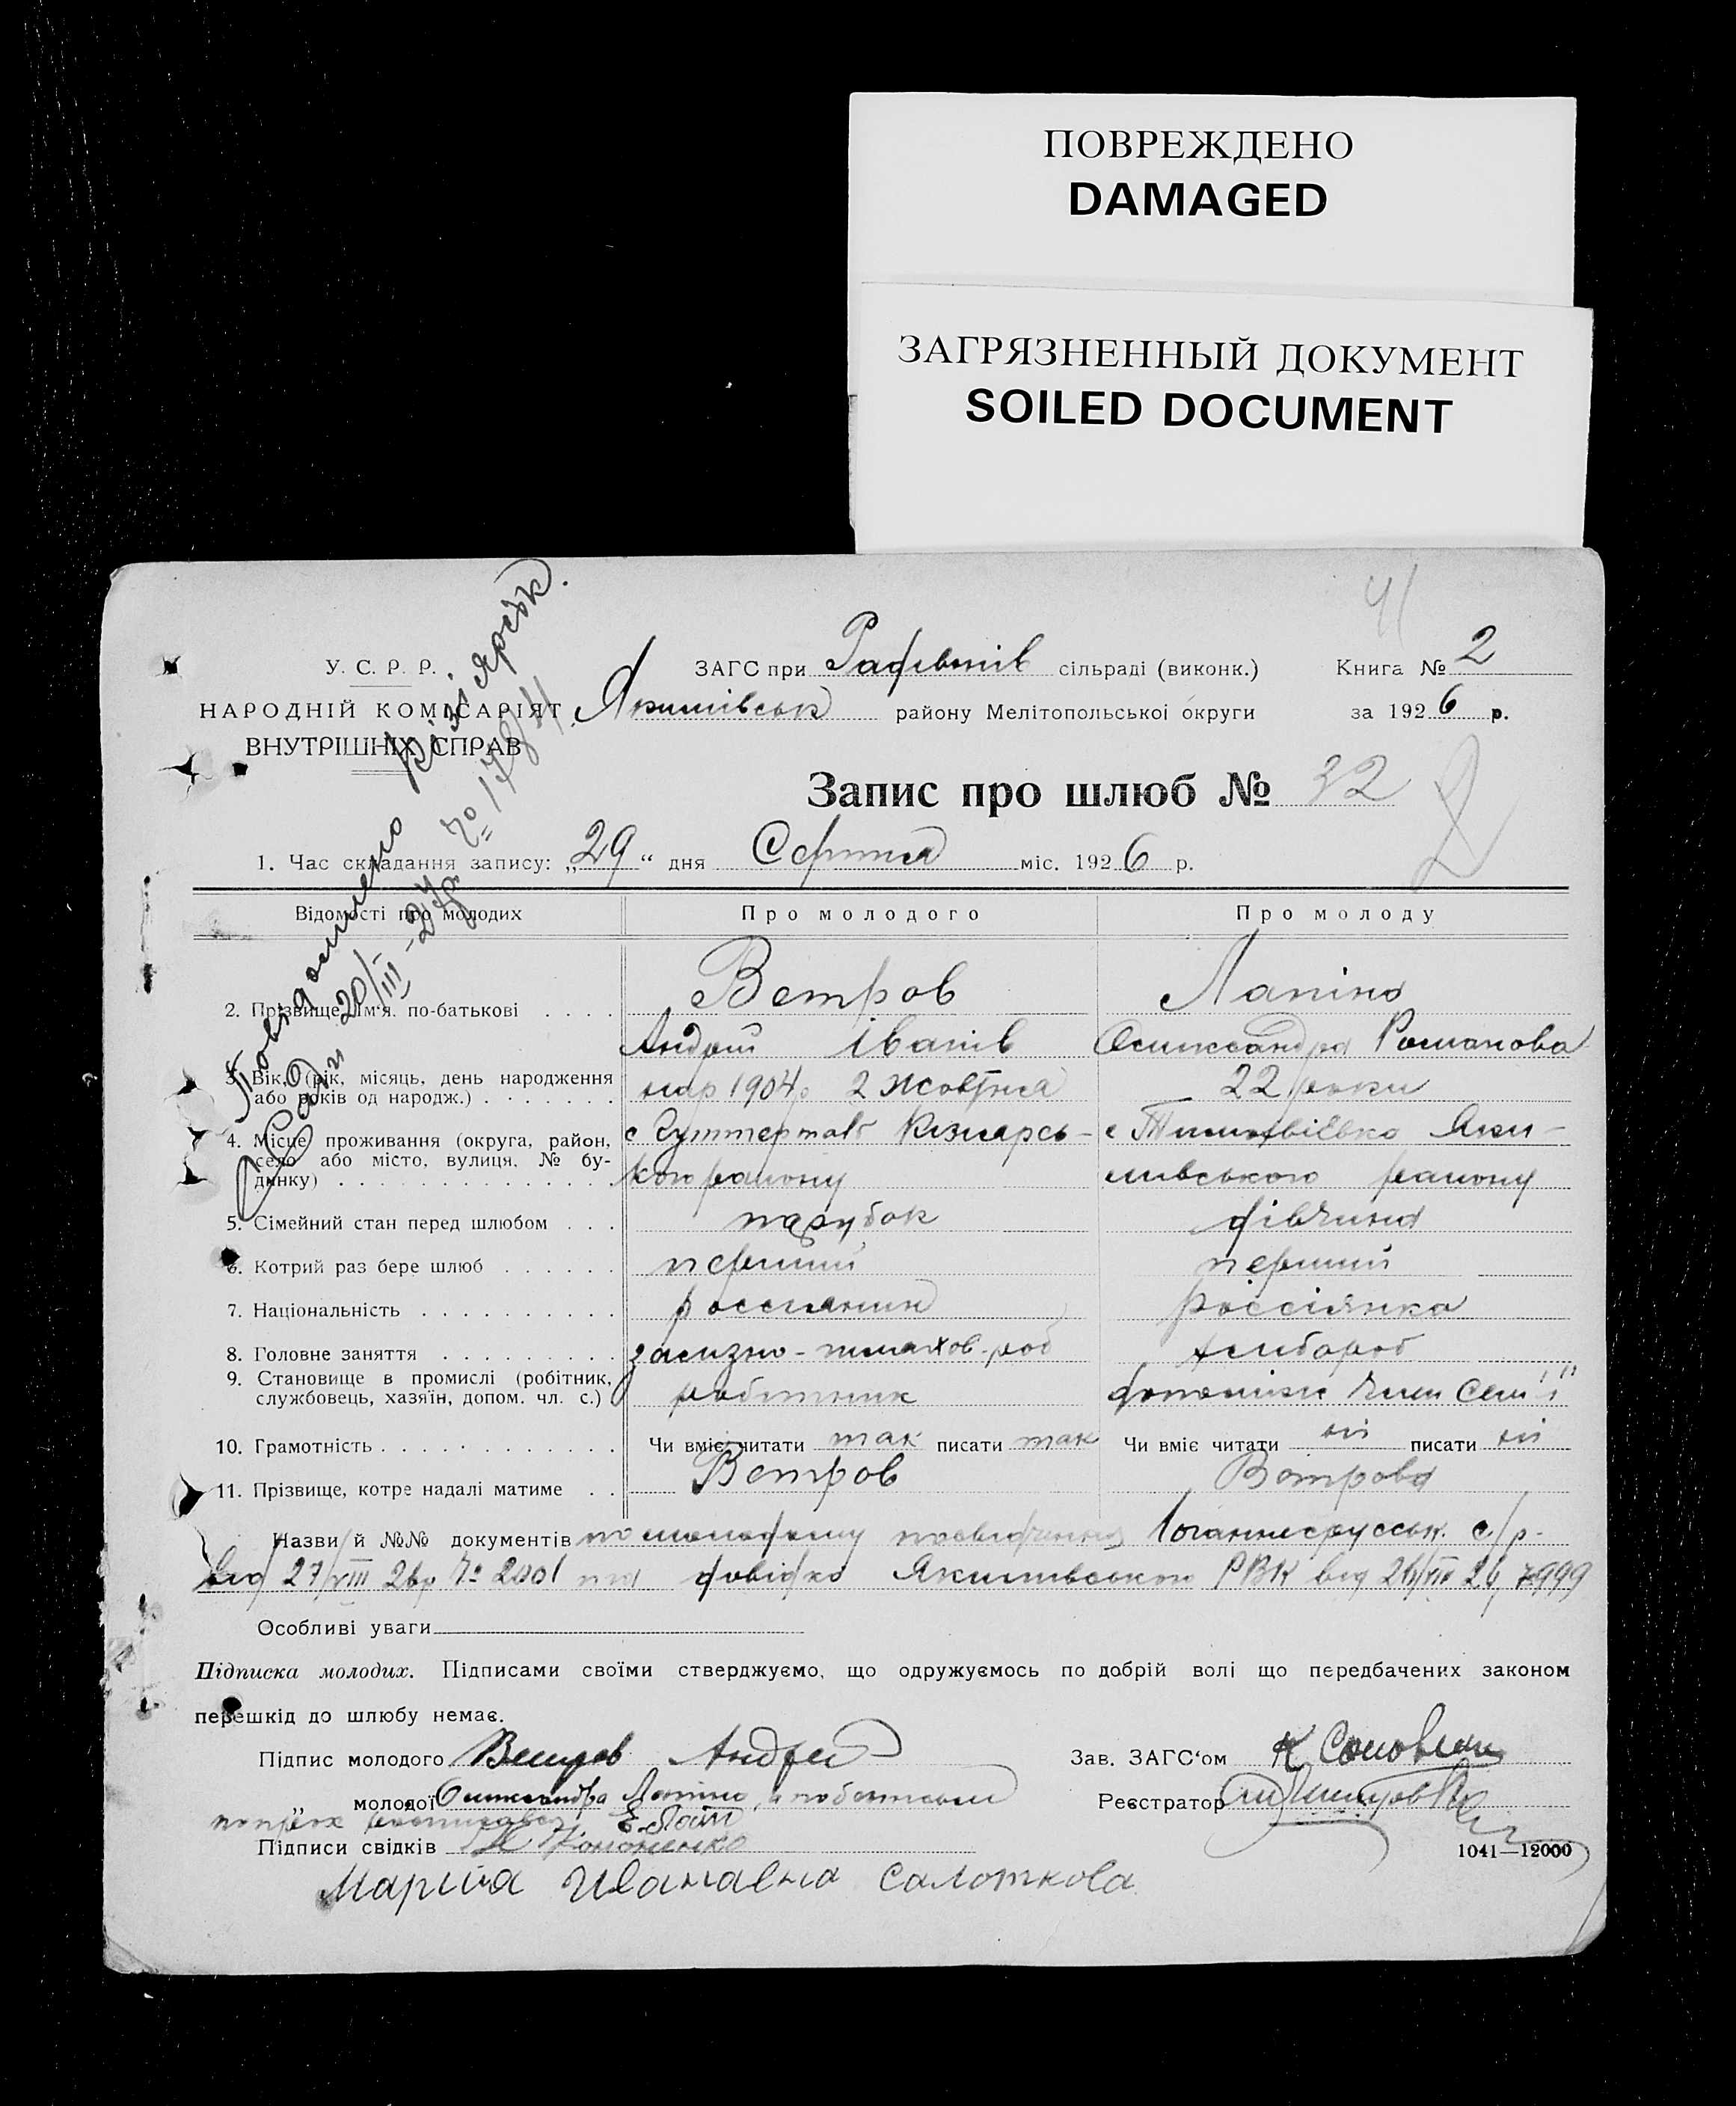 ПОВРЕЖДЕНО
DAMAGED
ЗАГРЯЗНЕННЫЙ ДОКУМЕНТ
SOILED DOCUMENT
41
У. С. Р. Р.
НАРОДНІЙ КОМІСАРІЯТ
ВНУТРІШНІХ СПРАВ
ЗАГС при сільраді (виконк.)
Книга № 2
Якимівськ району Мелітопольської округи
за 1926 р.
Запис про шлюб № 32
1. Час складання запису: „29“ дня Серпня міс. 1926 р.
Відомості про молодих
Про молодого
Про молоду
2. Прізвище, ім'я, по-батькові
Ветров
Лапіна
Андрій Іванів
Олександра Романова
3. Вік, (рік, місяць, день народження або років од народж.)
нар 1904 р 2 жовтня
22 роки
4. Місце проживання (округа, район, село або місто, вулиця, № будинку)
с Гуттерталь
кого району
с Яки-
мивського району
5. Сімейний стан перед шлюбом
парубок
дівчина
6. Котрий раз бере шлюб
перший
перший
7. Національність
россиянин
россіянка
8. Головне заняття
зализно-шляхов. роб
хлибороб
9. Становище в промислі (робітник, службовець, хазяїн, допом. чл. с.)
робітник
член семʼї
10. Грамотність
Чи вміє читати так писати так
Чи вміє читати ні писати ні
11. Прізвище, котре надалі матиме
Ветров
Ветрова
Назви й №№ документів по молодому посвідчення с/р.
від 27/VIII 26р № 2001 довідка Якимивського РВК від
Особливі уваги
Підписка молодих. Підписами своїми стверджуємо, що одружуємось по добрій волі що передбачених законом
перешкід до шлюбу немає.
Підпис молодого Ветров Андрей
Зав. ЗАГС‘ом
„ молодої Олександра Лапіна, а
Реєстратор
Підписи свідків Кононенко
1041—12000
Мария Ивановна Салоткова
Повідомлено